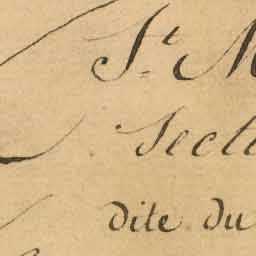 St. M
Secti
dite du